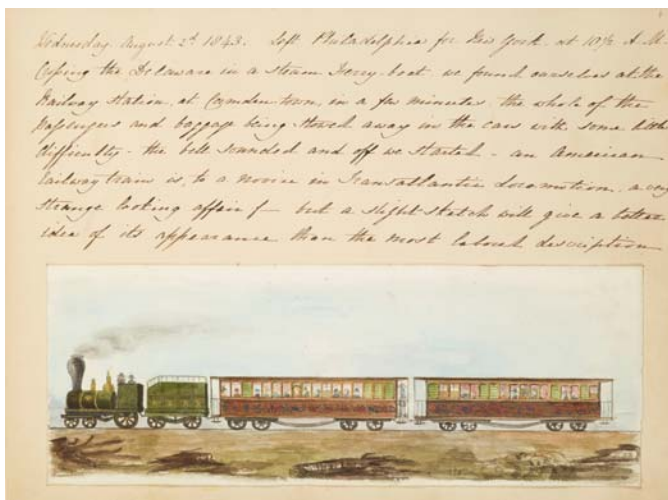 Wednesday. August. 2d. 1843. Left Philadelphia for New York. at 10½ A.M.
Crossing the Delaware in a steam Ferry-boat we found ourselves at the
Railway Station, at Camden town, in a few minutes, the whole of the
Passengers and baggage being stowed away in the cars with some little
difficulty - the bell sounded and off we started - an American
Railway train is, to a novice in Transatlantic Locomotion, a very
strange looking affair - but a slight sketch will give a better
idea of its appearance than the most labored description